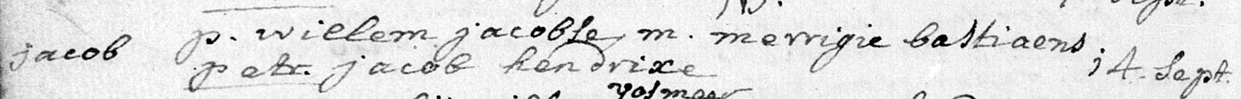 jacob p. willem jacobse, m. merrigie bastiaens
petr. jacob hendrixe 14. Sept.